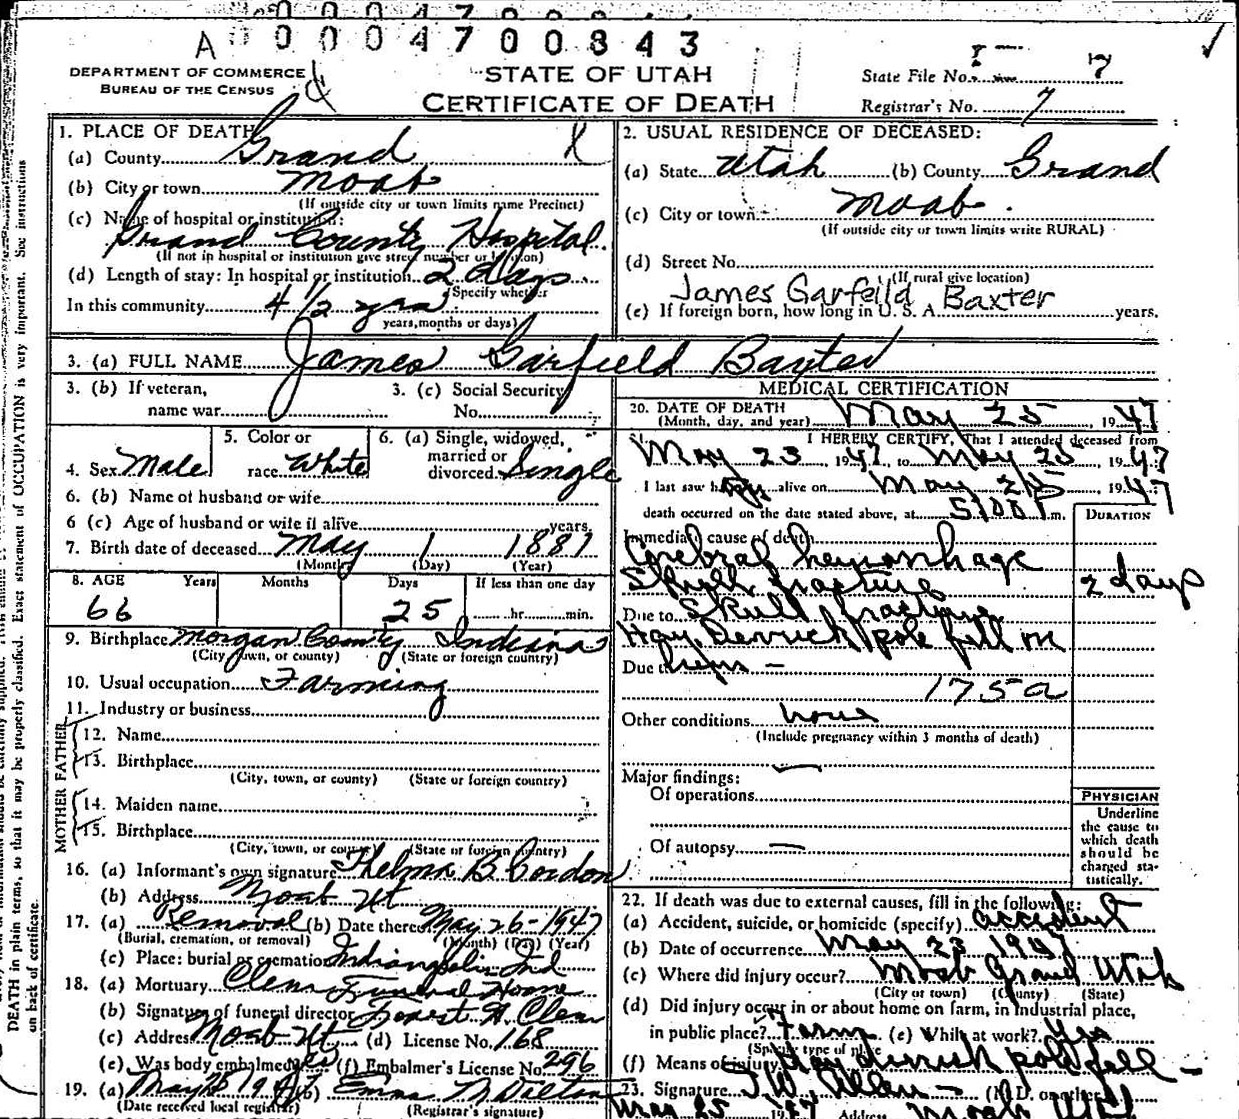 A 0004700343
DEPARTMENT OF COMMERCE
BUREAU OF THE CENSUS
STATE OF UTAH
CERTIFICATE OF DEATH
State File No. 7
Registrar's No. 7
1. PLACE OF DEATH
(a) County Grand
(b) City or town Moab
(If outside city or town limits name Precinct)
(c) Name of hospital or institution:
Grand County Hospital
(If not in hospital or institution give street number or location)
(d) Length of stay: In hospital or institution 2 days
(Specify whether
In this community 4 1/2 yrs
years, months or days)
2. USUAL RESIDENCE OF DECEASED:
(a) State Utah (b) County Grand
(c) City or town Moab.
(If outside city or town limits write RURAL)
(d) Street No.
(If rural give location)
James Garfeild Baxter
(e) If foreign born, how long in U. S. A. years.
3. (a) FULL NAME James Garfield Baxter
3. (b) If veteran,
name war
3. (c) Social Security
No.
4. Sex Male
5. Color or
race White
6. (a) Single, widowed,
married or
divorced Single
6. (b) Name of husband or wife
6 (c) Age of husband or wife if alive years.
7. Birth date of deceased May 1 1881
(Month) (Day) (Year)
8. AGE Years Months Days If less than one day
66 25 hr. min.
9. Birthplace Morgan County Indiana
(City, town, or county) (State or foreign country)
10. Usual occupation Farming
11. Industry or business
FATHER
12. Name
13. Birthplace
(City, town, or county) (State or foreign country)
MOTHER
14. Maiden name
15. Birthplace
(City, town, or county) (State or foreign country)
16. (a) Informant's own signature Thelma B Cordon
(b) Address Moab Ut
17. (a) Removal (b) Date thereof May 26-1947
(Burial, cremation, or removal) (Month) (Day) (Year)
(c) Place: burial or cremation Indianapolis Ind
18. (a) Mortuary Clem Funeral Home
(b) Signature of funeral director Forest W. Clem
(c) Address Moab Ut (d) License No. 168
(e) Was body embalmed? yes (f) Embalmer's License No. 296
19. (a) May (b) Emma M Walton
(Date received local registrar) (Registrar's signature)
MEDICAL CERTIFICATION
20. DATE OF DEATH
(Month, day, and year) May 25, 1947
21. I HEREBY CERTIFY, That I attended deceased from
May 23, 1947, to May 25, 1947
I last saw h alive on May 25, 1947
death occurred on the date stated above, at 5:00 P.m.
DURATION
Immediate cause of death
Cerebral hemorrhage
Skull fracture 2 days
Due to Skull fracture
Hay Derrick pole fell on
Due to him -
175a
Other conditions none
(Include pregnancy within 3 months of death)
Major findings:
Of operations
Of autopsy
PHYSICIAN
Underline
the cause to
which death
should be
charged sta-
tistically.
22. If death was due to external causes, fill in the following:
(a) Accident, suicide, or homicide (specify) accident
(b) Date of occurrence May 23 1947
(c) Where did injury occur? Moab Grand Utah
(City or town) (County) (State)
(d) Did injury occur in or about home on farm, in industrial place,
in public place? Farm (e) While at work? Yes
(Specify type of place)
(f) Means of injury Hay derrick pole fell -
23. Signature I.W. Allen - (M.D. or other)
May 25 1947 Address Moab Utah
DEATH in plain terms, so that it may be properly classified. Exact statement of OCCUPATION is very important. See instructions
on back of certificate.